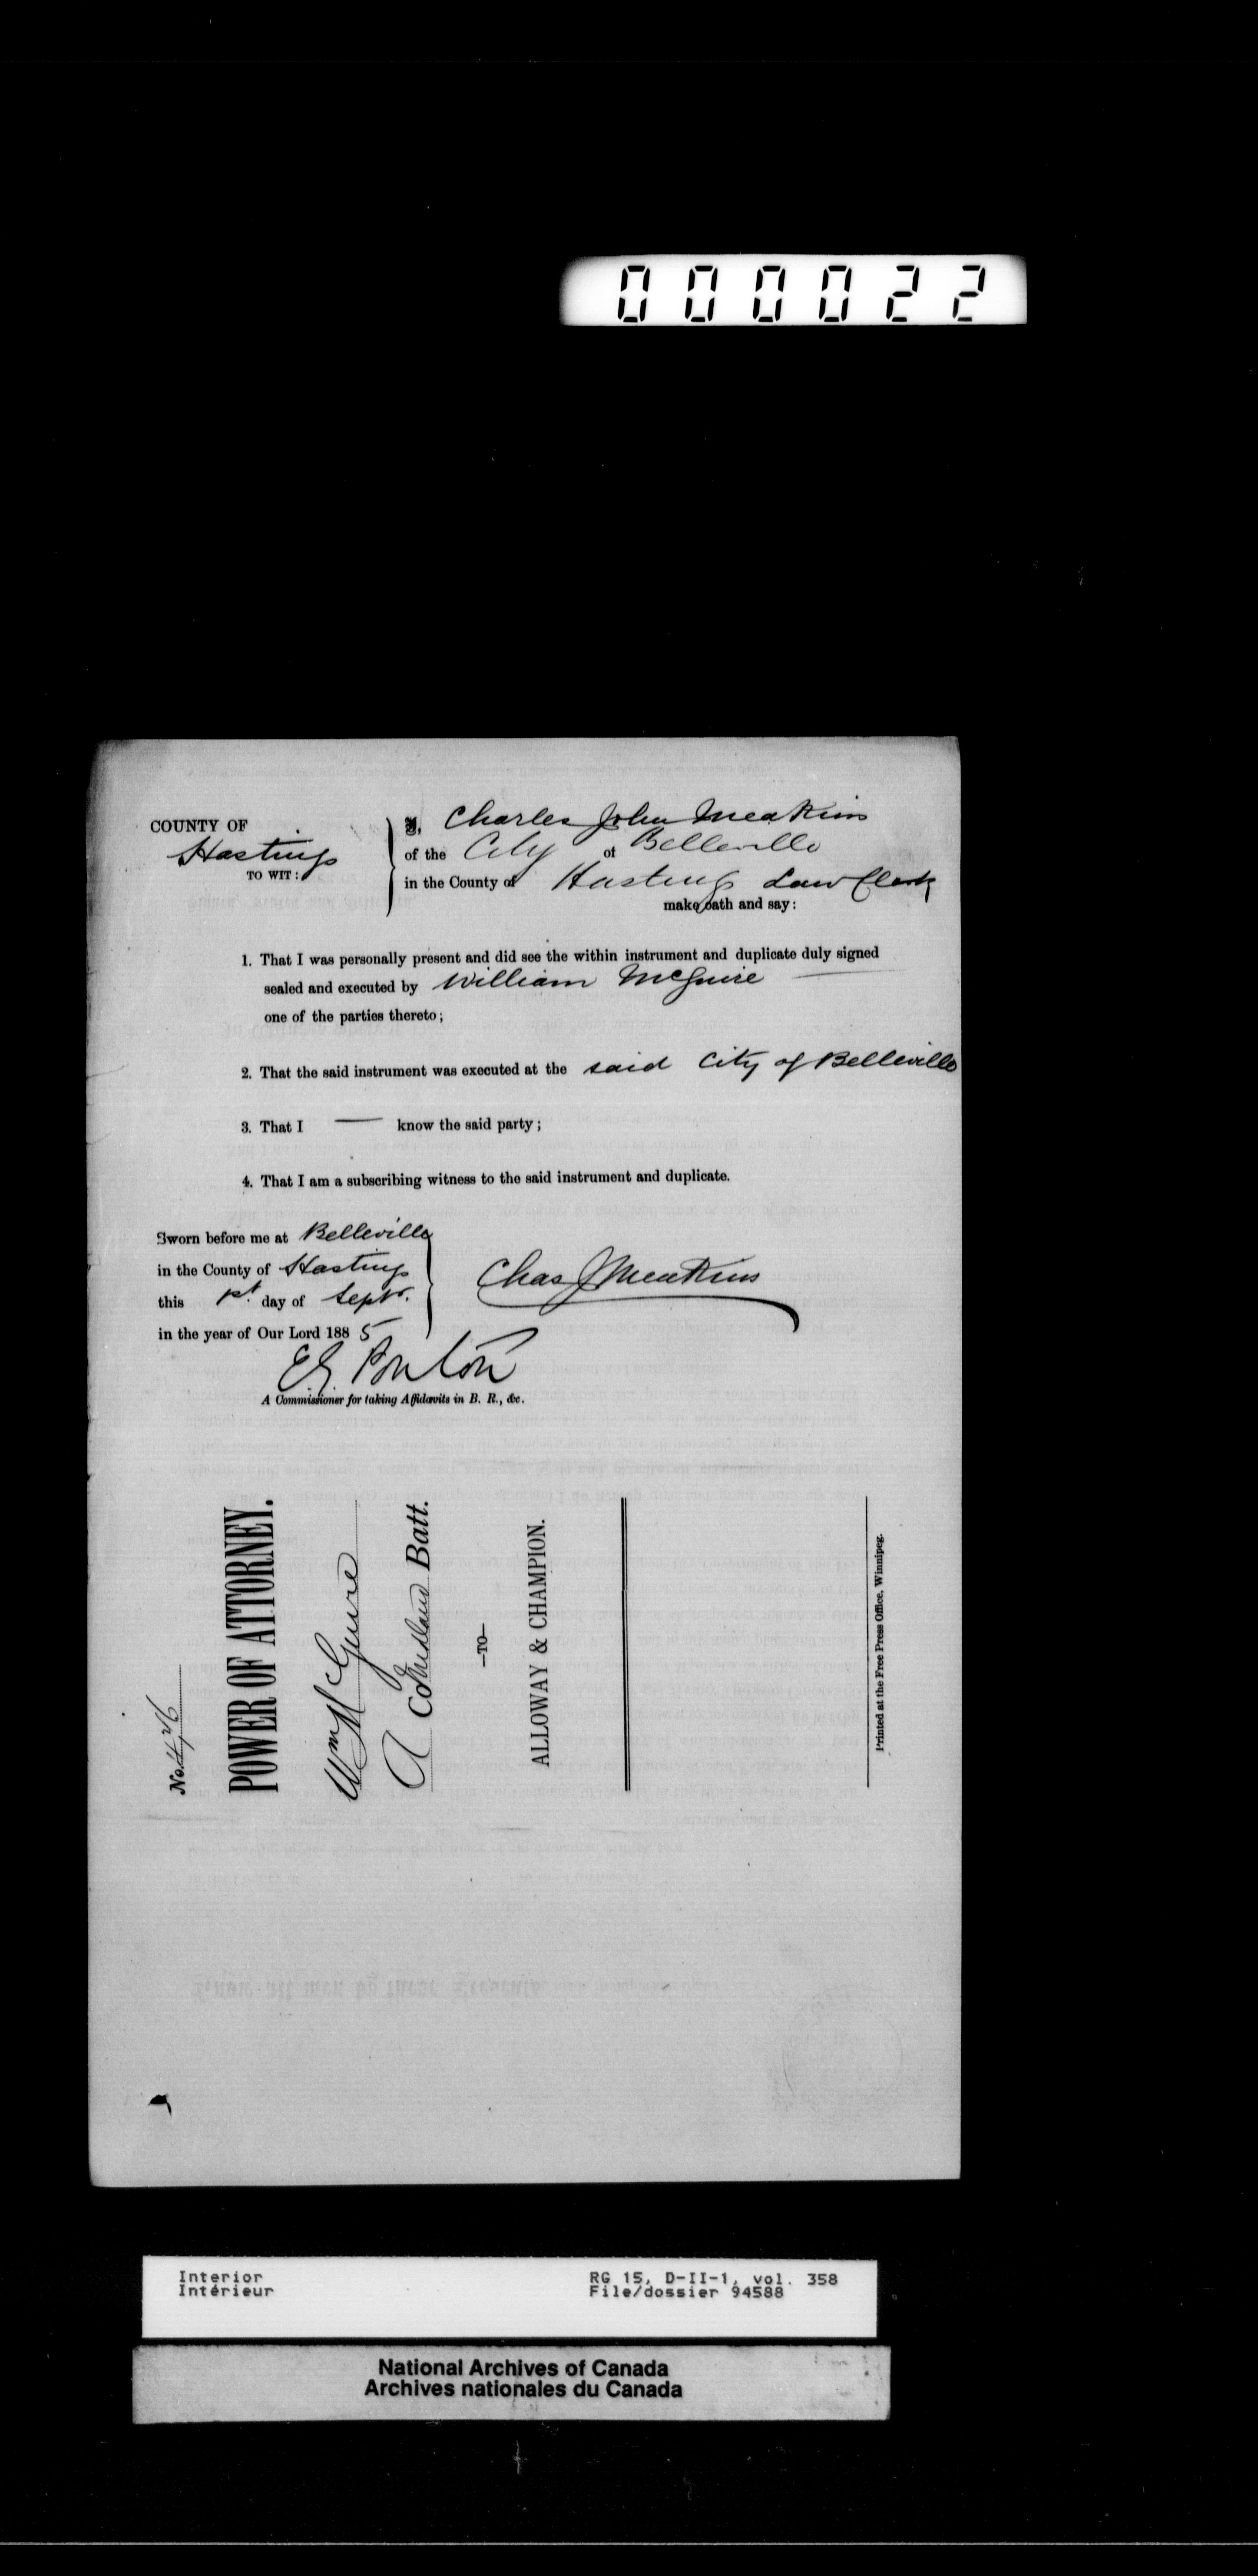 000022
COUNTY OF
Hastings
TO WIT:
I, Charles John Meakins
of the City of Belleville
in the County of Hastings Law Clerk
make oath and say:
1. That I was personally present and did see the within instrument and duplicate duly signed
sealed and executed by William McGuire
one of the parties thereto;
2. That the said instrument was executed at the said City of Belleville
3. That I — know the said party;
4. That I am a subscribing witness to the said instrument and duplicate.
Sworn before me at Belleville
in the County of Hastings
this 1st day of Septr.
in the year of Our Lord 1885
Chas J Meakins
Ponton
A Commissioner for taking Affidavits in B. R., &c.
No. 426
POWER OF ATTORNEY.
Wm McGuire
A Co Midland Batt.
—TO—
ALLOWAY & CHAMPION.
Printed at the Free Press Office, Winnipeg.
Interior
Intérieur
RG 15, D-II-1, vol. 358
File/dossier 94588
National Archives of Canada
Archives nationales du Canada